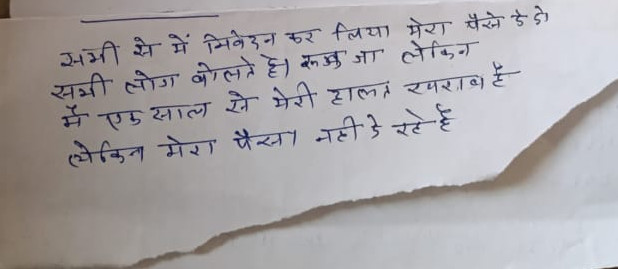 सभी से में निवेदन कर लिया मेरा पैसे दे दो
सभी लोग बोलते है। रूक जा लेकिन
में एक साल से मेरी हालत खराब है
लेकिन मेरा पैसा नही दे रहे है